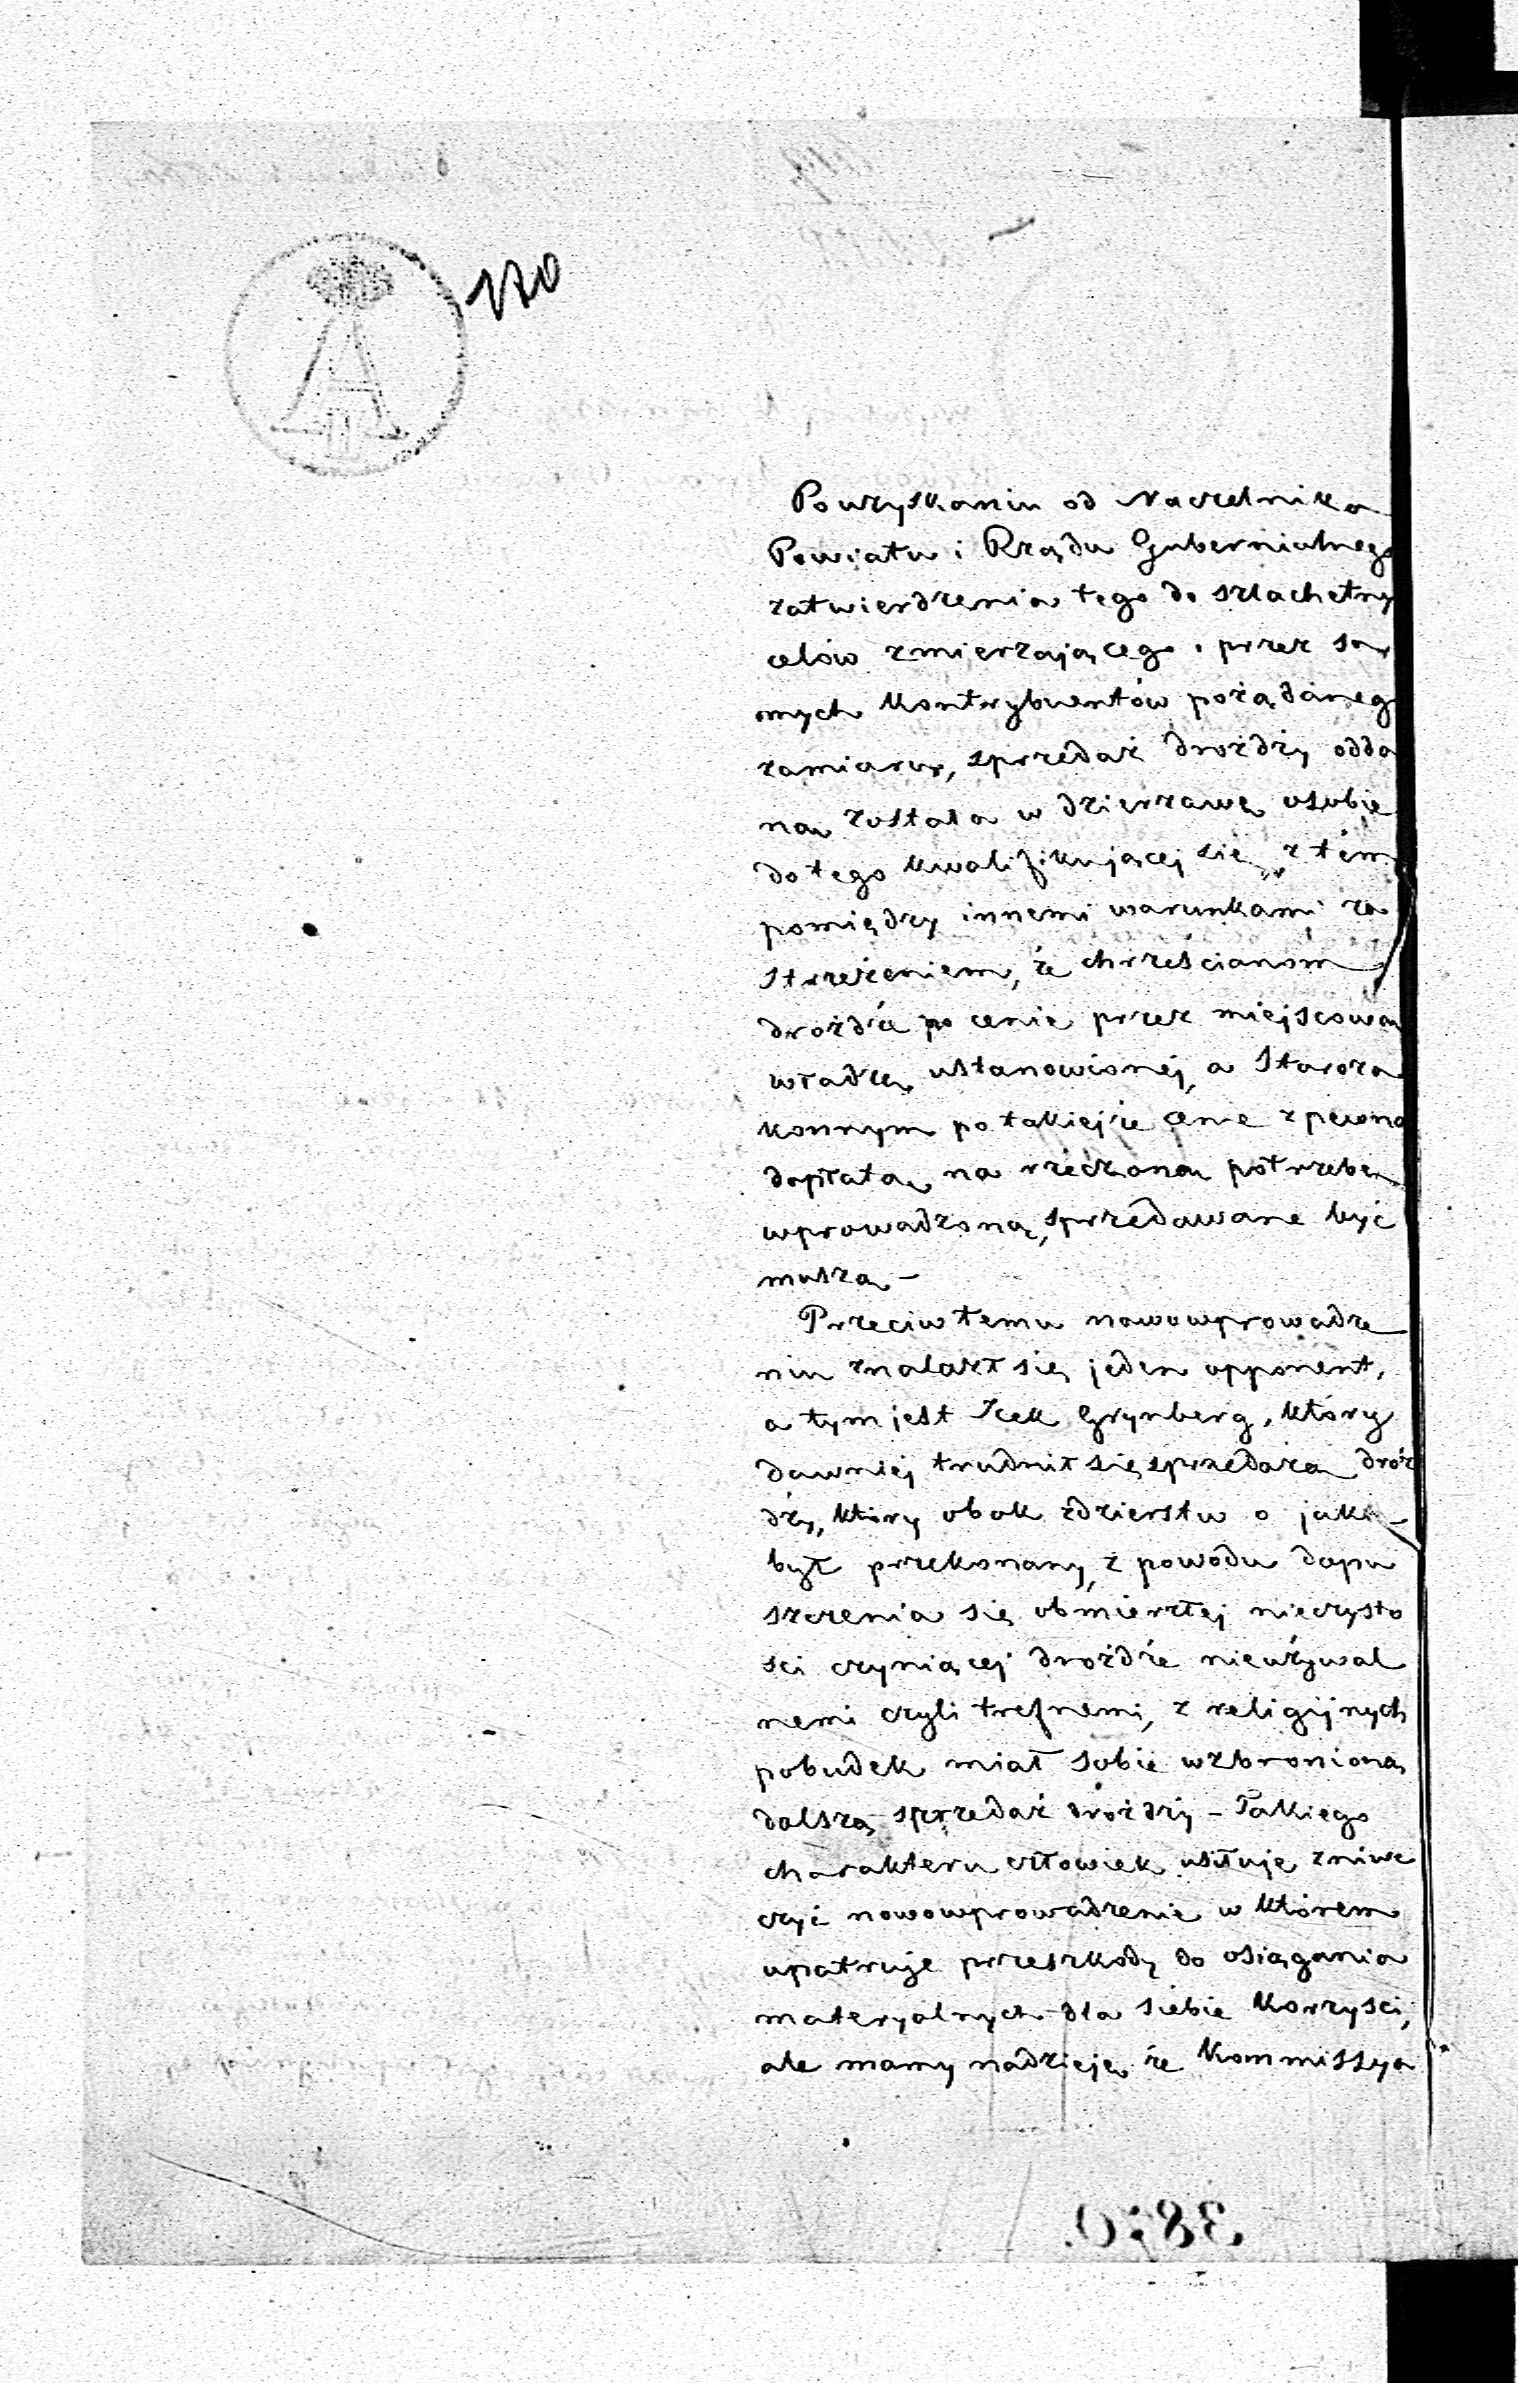 170
A
II
Po uzyskaniu od Naczelnika
Powiatu i Rządu Gubernialnego
zatwierdzenia tego do szlachetny
celów zmierzającego i przez sa
mych Kontrybuentów pożądaneg
zamiaru, sprzedaż drożdży odda
na została w dzierżawę osobie
do tego kwalifikującej się, z tém
pomiędzy innemi warunkami za
strzeżeniem, że chrześcianom
drożdże po cenie przez miejscową
władzę ustanowionej, a Staroza
konnym po takiejże cenie z pewną
dopłatą na rzeczoną potrzebę
wprowadzoną, sprzedawane być
muszą –
Przeciw temu nowowprowadze
niu znalazł się jeden opponent,
a tym jest Icek Grynberg, który
dawniej trudnił się sprzedażą droż
dży, który obok zdzierstw o jaki
był przekonany, z powodu dopu
szczenia się obmierzłej nieczysto
ści czyniącej drożdże nieużywal
nemi czyli trefnemi, z religijnych
pobudek miał sobie wzbronioną
dalszą sprzedaż drożdży – Takiego
charakteru człowiek usiłuje zniwe
czyć nowowprowadzenie w którem
upatruje przeszkody do osiągania
materyalnych dla siebie Korzyści,
ale mamy nadzieję że Kommissya